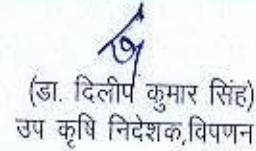 (डा. दिलीप कुमार सिंह)
उप कृषि निदेशक,विपणन